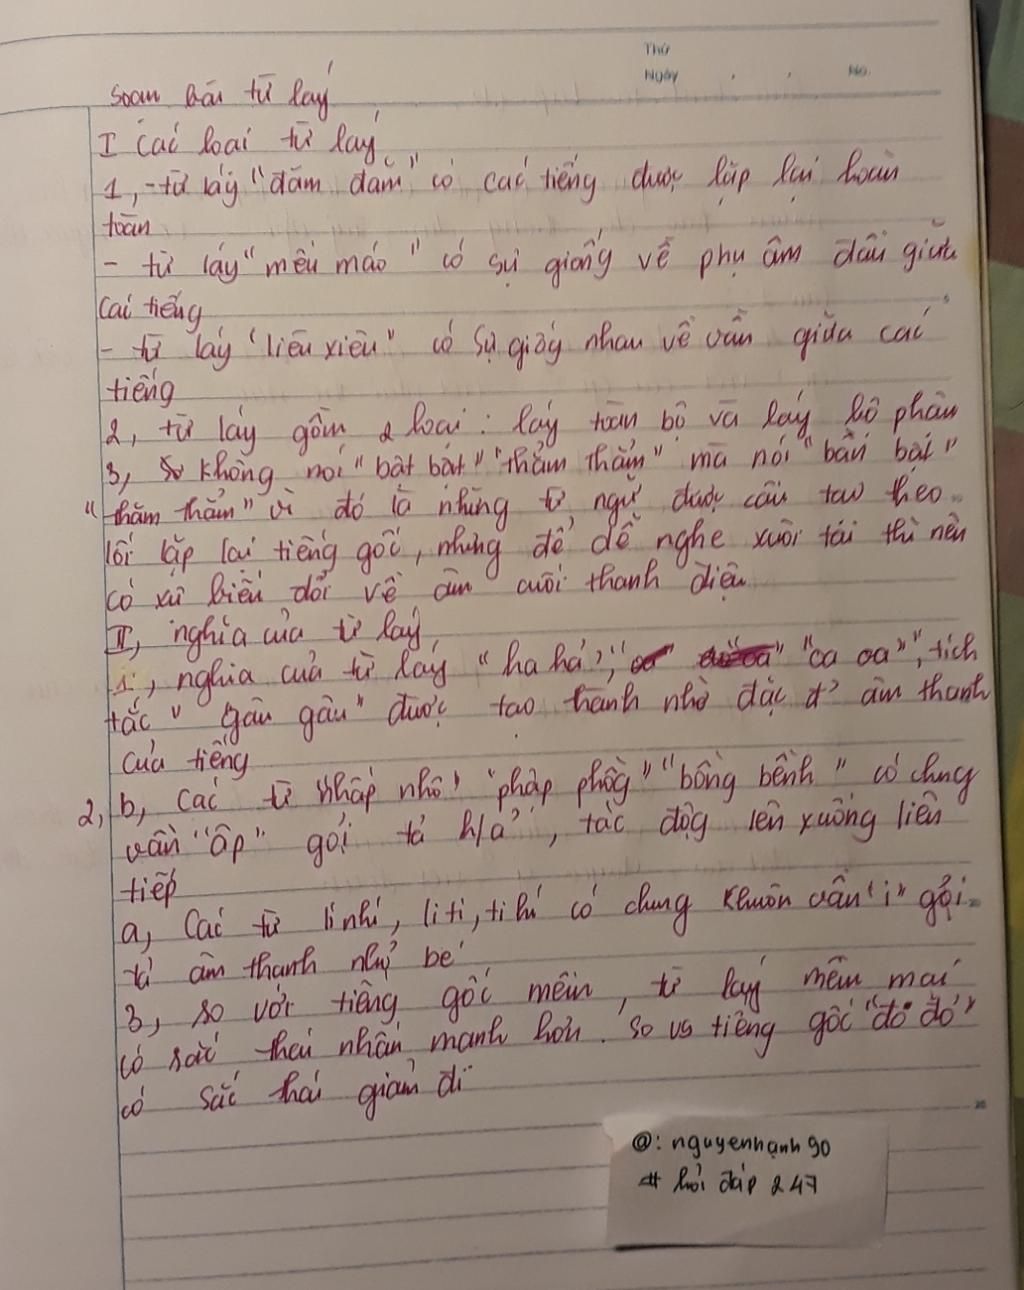 Thứ
Ngày No.
soạn bài từ láy
I Các loại từ láy
1, - từ láy "đăm đăm" có các tiếng được lặp lại hoàn
toàn
- từ láy "mếu máo" có sự giống về phụ âm đầu giữa
các tiếng
- từ láy "liêu xiêu" có sự giống nhau về vần giữa các
tiếng
2, từ láy gồm 2 loại: láy toàn bộ và láy bộ phận
3, không nói "bật bật" "thẳm thẳm" mà nói "bần bật"
"thăm thẳm" vì đó là những từ ngữ được cấu tạo theo
lối lặp lại tiếng gốc, nhưng để dễ nghe xuôi tai thì nên
có sự biến đổi về âm cuối thanh điệu
II, nghĩa của từ láy
1, nghĩa của từ láy "ha hả", "oa oa", "tích
tắc" "gâu gâu" được tạo thành nhờ đặc đ² âm thanh
của tiếng
2, b, Các từ "nhấp nhô" "phập phồng" "bồng bềnh" có chung
vần "ấp" gợi tả h/ả², tác động lên xuống liên
tiếp
a, Các từ lí nhí, li ti, ti hí có chung khuôn vần "i" gợi
tả âm thanh nhỏ bé
3, so với tiếng gốc mềm, từ láy mềm mại
có sắc thái nhấn mạnh hơn. So vs tiếng gốc "đo đỏ"
có sắc thái giảm đi
25
@: nguyenhạnh90
# hỏi đáp 247